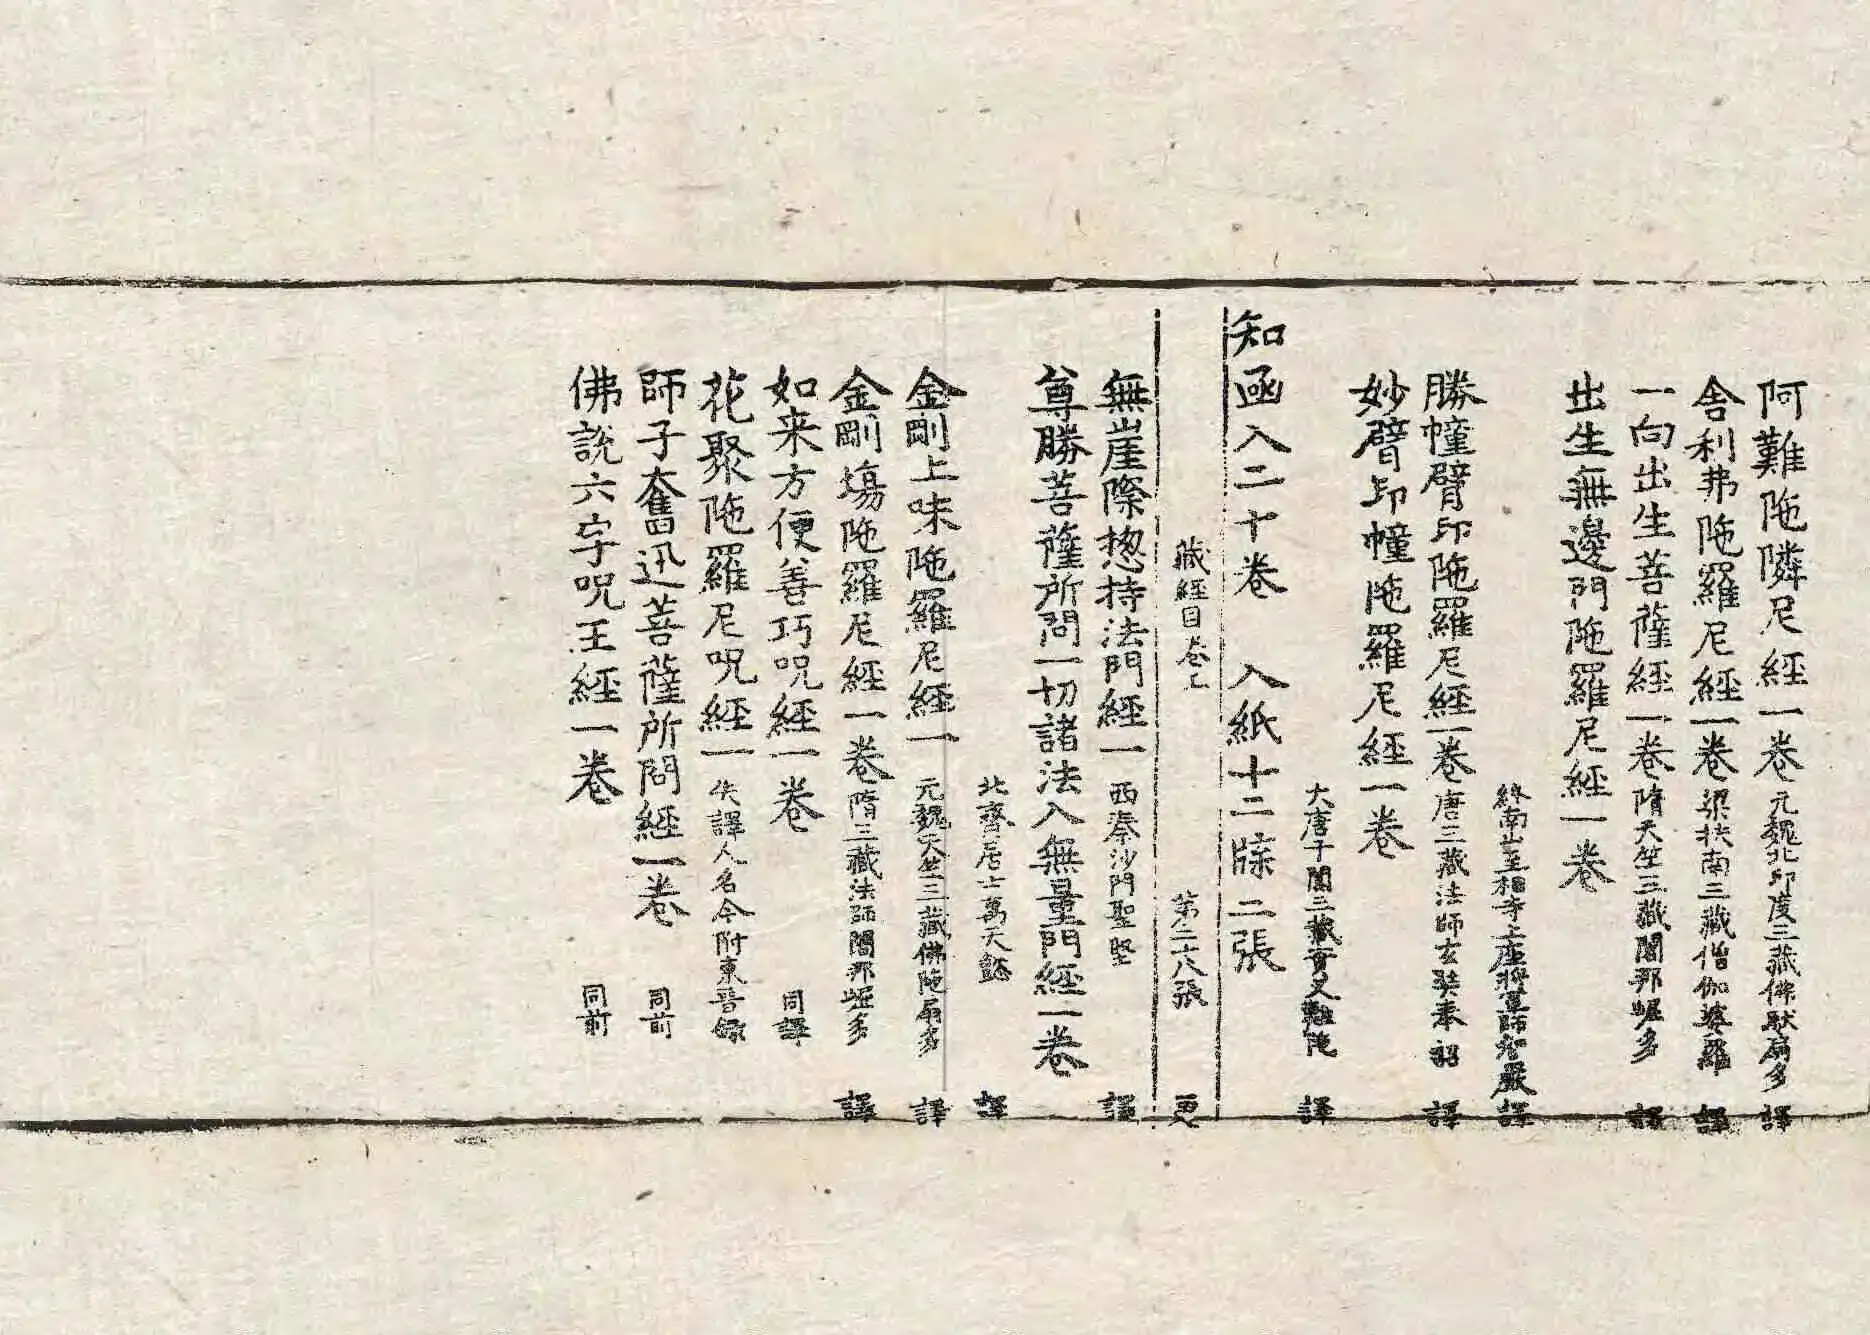 阿難陁隣尼經一卷 元魏北印度三藏佛馱扇多 譯
舍利弗陁羅尼經一卷 梁扶南三藏僧伽婆羅 譯
一向出生菩薩經一卷 隋天竺三藏闍那崛多 譯
出生無邊門陁羅尼經一卷
終南山至相寺上座將軍師智嚴 譯
勝幢臂印陁羅尼經一卷 唐三藏法師玄奘奉詔 譯
妙臂印幢陁羅尼經一卷
大唐于闐三藏實叉難陁 譯
知函入二十卷 入紙十二牒二張
藏經目卷上 第二十八張 更
無崖際揔持法門經一 西秦沙門聖堅 譯
尊勝菩薩所問一切諸法入無量門經一卷
北齊居士萬天懿 譯
金剛上味陁羅尼經一 元魏天竺三藏佛陁扇多 譯
金剛塲陁羅尼經一卷 隋三藏法師闍那崛多 譯
如来方便善巧呪經一卷 同譯
花聚陁羅尼呪經一 失譯人名今附東晉錄
師子奮迅菩薩所問經一卷 同前
佛說六字呪王經一卷 同前